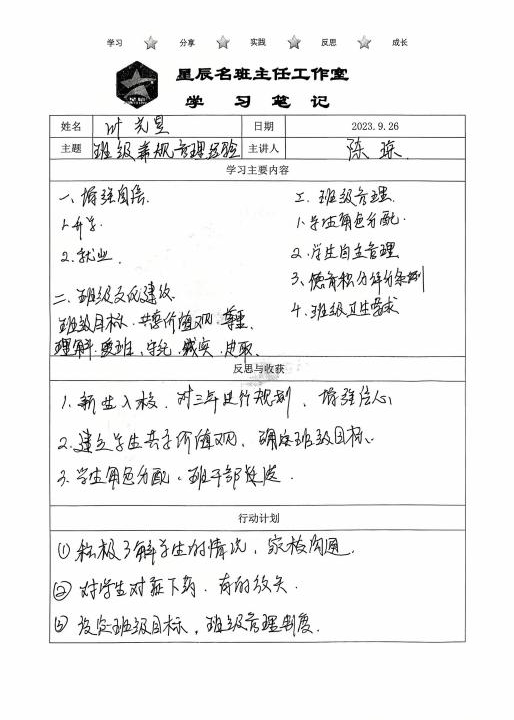 学习 ☆ 分享 ☆ 实践 ☆ 反思 ☆ 成长
星辰名班主任工作室
学 习 笔 记
姓名 叶光昱 日期 2023.9.26
主题 班级常规管理经验 主讲人 陈琼
学习主要内容
一、增强自信.
1.升学.
2.就业.
二、班级文化建设.
班级目标、共享价值观、尊重、
理解、爱班、守纪、诚实、进取.
三. 班级管理.
1.学生角色分配.
2.学生自主管理
3、德育积分评价条例
4.班级卫生要求
反思与收获
1.新生入校、对三年进行规划、增强信心
2.建立学生共享价值观、确定班级目标.
3.学生角色分配、班干部
行动计划
①积极了解学生的情况、家校沟通.
②对学生对症下药、有的放矢.
③设定班级目标,班级管理制度.